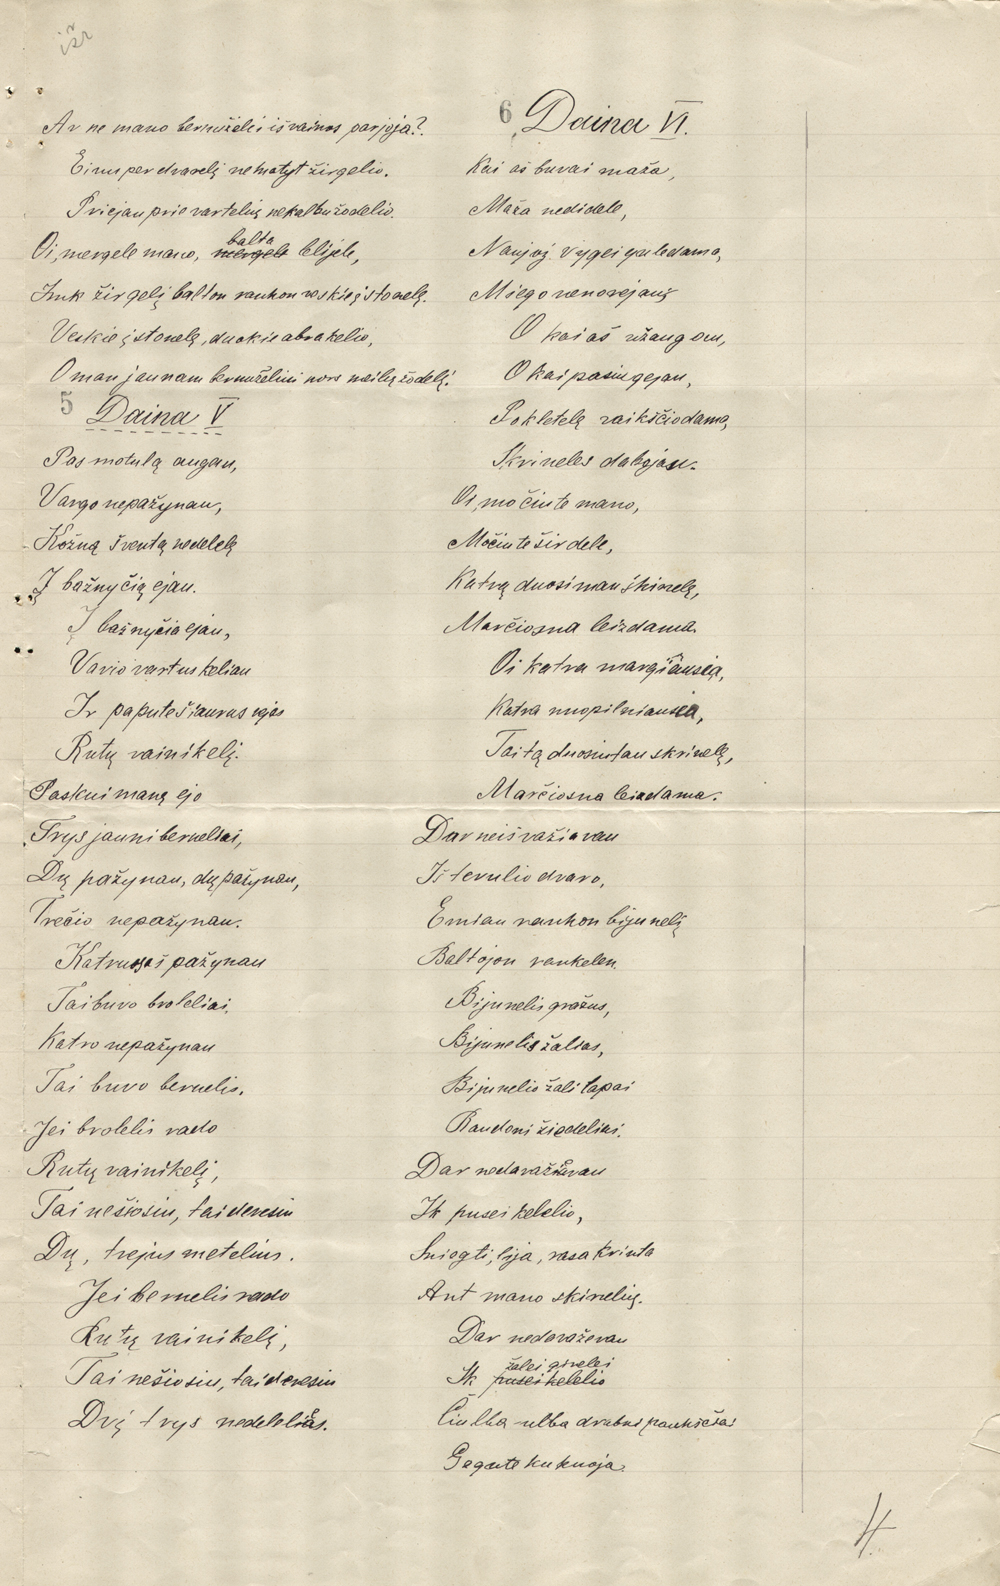 Ar ne mano bernužėlis iš vainos parjoja?
Einu per dvarelį nematyt žirgelio.
Priejau prie vartelių nekalbu žodelio.
Oi, mergele mano, balta lelijele,
Imk žirgelį balton rankon veskie į stonelę.
Veskie į stonelę, duokie abrakelio,
O man jaunam bernužėliui nors meilų žodelį!
5
Daina V
Pas motulą augau,
Vargo nepažynau,
Kožną šventą nedelelę
Į bažnyčią ejau.
Į bažnyčia ejau,
Vario vartus keliau
Ir papute šiaurus vejas
Rutų vainikelį.
Paskui manę ejo
Trys jauni berneliai,
Dų pažynau, dų pažynau,
Trečio nepažynau.
Katruos aš pažynau
Tai buvo broleliai,
Katro nepažynau
Tai buvo bernelis.
Jei brolelis rado
Rutų vainikelį,
Tai nešiosiu, tai devesiu
Dų, trejus metelius.
Jei bernelis rado
Rutų vainikelį,
Tai nešiosiu, tai devesiu
Dvi, trys nedelelias.
6
Daina VI.
Kai aš buvai maža,
Maža nedidele,
Naujoj vygei guledama,
Miego nenorejau
O kai aš užangau,
O kai pasiugejau,
Po kletelę vaikščiodama,
Skrineles dabojau.
Oi, močiute mano,
Močiute širdele,
Katrą duosi man skrinelę,
Marčiosna leizdama.
Oi katra margiausia,
Katra nuopilniausia,
Tai tą duosiu tau skrinelę,
Marčiosna leizdama.
Dar neišvažiavau
Iš tevulio dvaro,
Emiau rankon bijunelį
Baltojon rankelen.
Bijunelis gražus,
Bijunelis žalias,
Bijunelio žali lapai
Raudoni žiedeliai.
Dar nedavaževau
Ik pusei kelelio,
Sniegti, lija, rasa krinta
Ant mano skrinelių.
Dar nedavaževau
Ik žalei girelei
pusei kelelio
Čiulba ulba drabni paukščiai
Gegute kukuoja.
4.